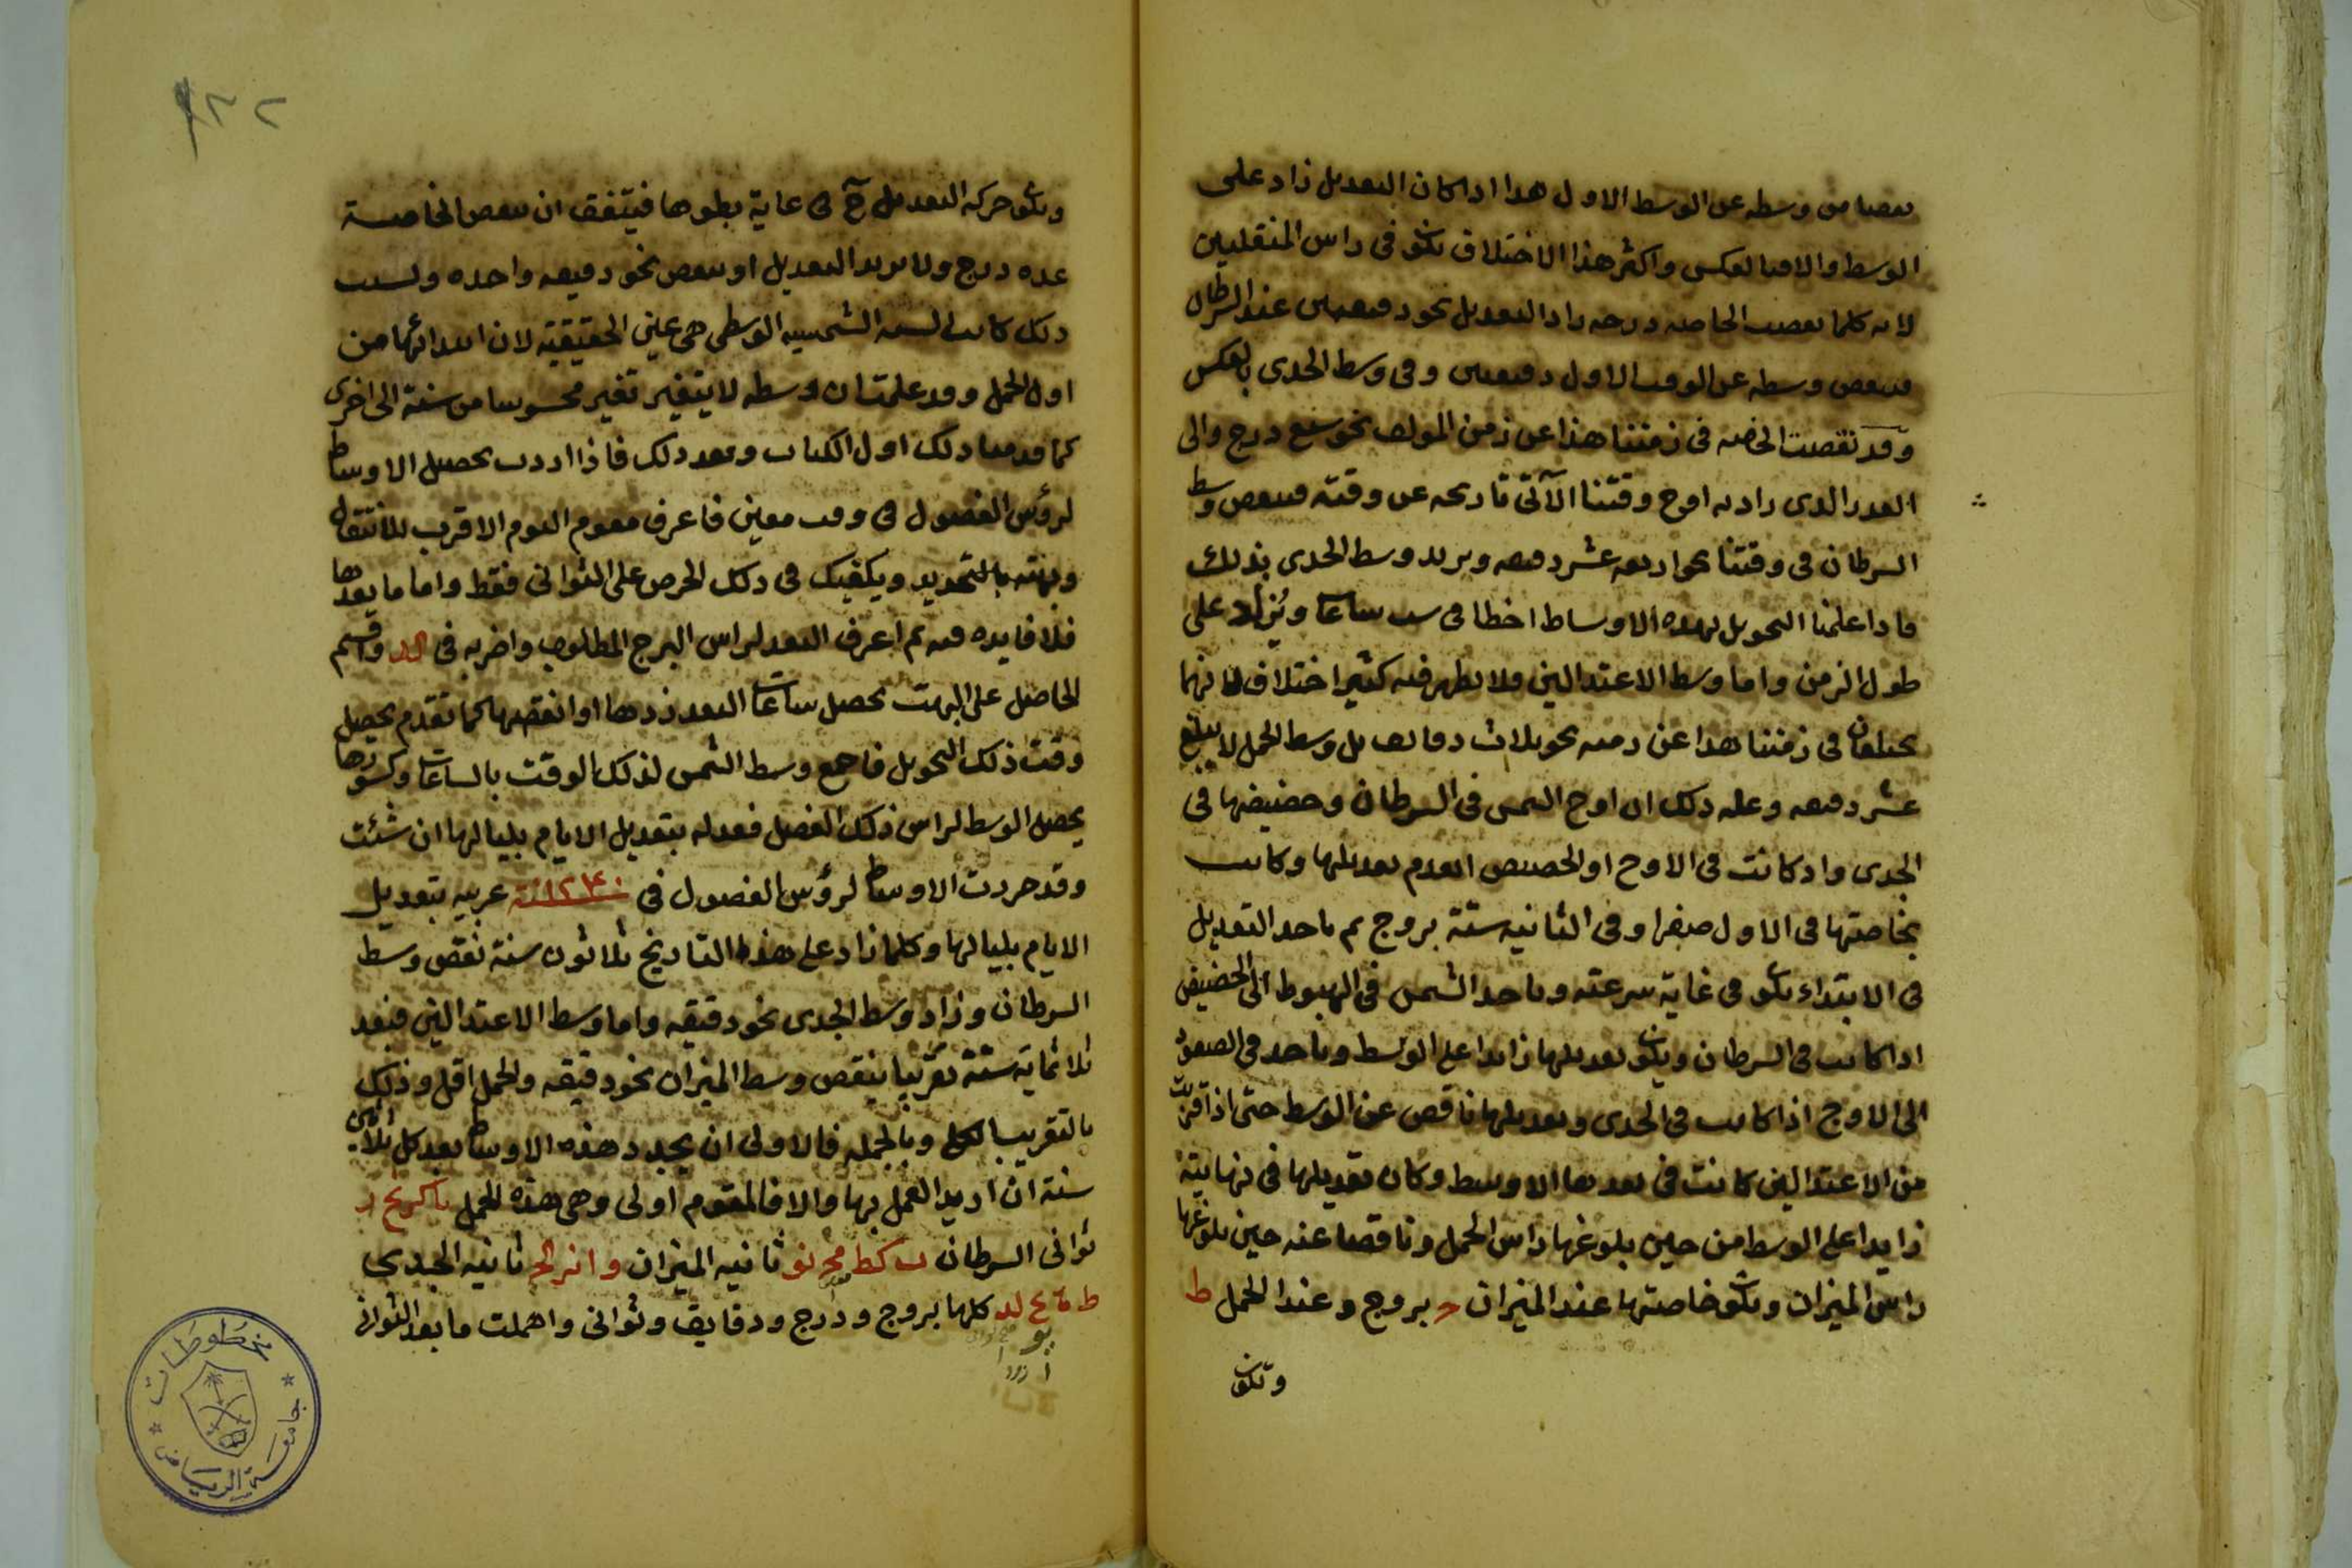 نقصا من وسطه عن الوسط الاول هذا اذا كان التعديل زاد على
الوسط والا فبالعكس واكثر هذا الاختلاف يكون فى راس المنقلبين
لانه كلما نقصت الخاصه درجه زاد التعديل نحو دقيقتين عند السرطان
فينقص وسطه عن الوقت الاول دقيقتين وفى وسط الجدى بالعكس
وقد نقصت الخاصه فى زمننا هذا عن زمن المولف نحو سبع درج والى
القدر الذى زاد به اوج وقتنا الآتى تاريخه عن وقته فينقص وسط
السرطان فى وقتنا نحو اربعه عشر دقيقه ويزيد وسط الجدى بذلك
فاذا علمنا التحويل بهذه الاوساط اخطا فى ست ساعات ويزاد على
طول الزمن واما وسط الاعتدالين فلا يظهر فيه كثير اختلاف لانهما
يختلفان فى زمننا هذا عن زمنه نحو ثلاث دقايق بل وسط الحمل لا يبلغ
عشر دقيقه وعله ذلك ان اوج الشمس فى السرطان وحضيضها فى
الجدى واذ كانت فى الاوج او الحضيض انعدم تعديلها وكانت
بخاصتها فى الاول صفرا وفى الثانيه ستة بروج ثم ياخذ التعديل
فى الابتداء يكون فى غاية سرعته وياخذ الشمس فى الهبوط الى الحضيض
اذا كانت فى السرطان ويكون تعديلها زايدا على الوسط وياخذ فى الصعود
الى الاوج اذا كانت فى الجدى وتعديلها ناقص عن الوسط حتى اذا قربت
من الاعتدالين كانت فى بعدها الاوسط وكان تعديلها فى نهايته
زايدا على الوسط من حين بلوغها راس الحمل وناقصا عنه حين بلوغها
راس الميزان ويكون خاصتها عند الميزان ج بروج وعند الحمل ط
وتكون
ويكون حركه التعديل ح فى غاية بطوها فيتفق ان ينقص الخاصة
عده درج ولا يزيد التعديل او ينقص نحو دقيقه واحده وليست
ذلك كانت السنه الشمسيه الوسطى هى عين الحقيقية لان ابتدائها من
اول الحمل وقد علمت ان وسطه لا يتغير تغير محسوسا من سنة الى اخرى
كما قدمنا ذلك اول الكتاب وبعد ذلك فاذا اردت تحصيل الاوساط
لرؤس الفصول فى وقت معين فاعرف مقوم اليوم الاقرب للانتقال
وبهته بالتحويد ويكفيك فى ذلك الحرص على الثوانى فقط واما ما بعدها
فلا فايده فيه ثم اعرف البعد لراس البرج المطلوب واضربه فى واقسم
الحاصل على البهت يحصل ساعات البعد زدها او انقصها كما تقدم يحصل
وقت ذلك التحويل فاجمع وسط الشمس لذلك الوقت بالساعات وكسورها
يحصل الوسط لراس ذلك الفصل فعدله بتعديل الايام بلياليها ان شئت
وقد حررت الاوساط لرؤس الفصول فى سنة ١٢٤٠ عربيه بتعديل
الايام بلياليها وكلما زاد على هذه التاريخ ثلاثون سنة نقص وسط
السرطان وزاد وسط الجدى نحو دقيقه واما وسط الاعتدالين فبعد
ثلاثماية سنة تقريبا ينقص وسط الميزان نحو دقيقه والحمل اقل وذلك
بالتقريب الكلى وبالجمله فالاولى ان يجدد هذه الاوساط بعد كل ثلاثين
سنة ان اريد العمل بها والا فالمقوم اولى وهى هذه للحمل
ثوانى السرطان ب كط مح نو ثانيه الميزان و ا نر لح ثانيه الجدى
ط كلها بروج ودرج ودقايق وثوانى واهملت ما بعد الثوانى
مخطوطات
جامعة الرياض